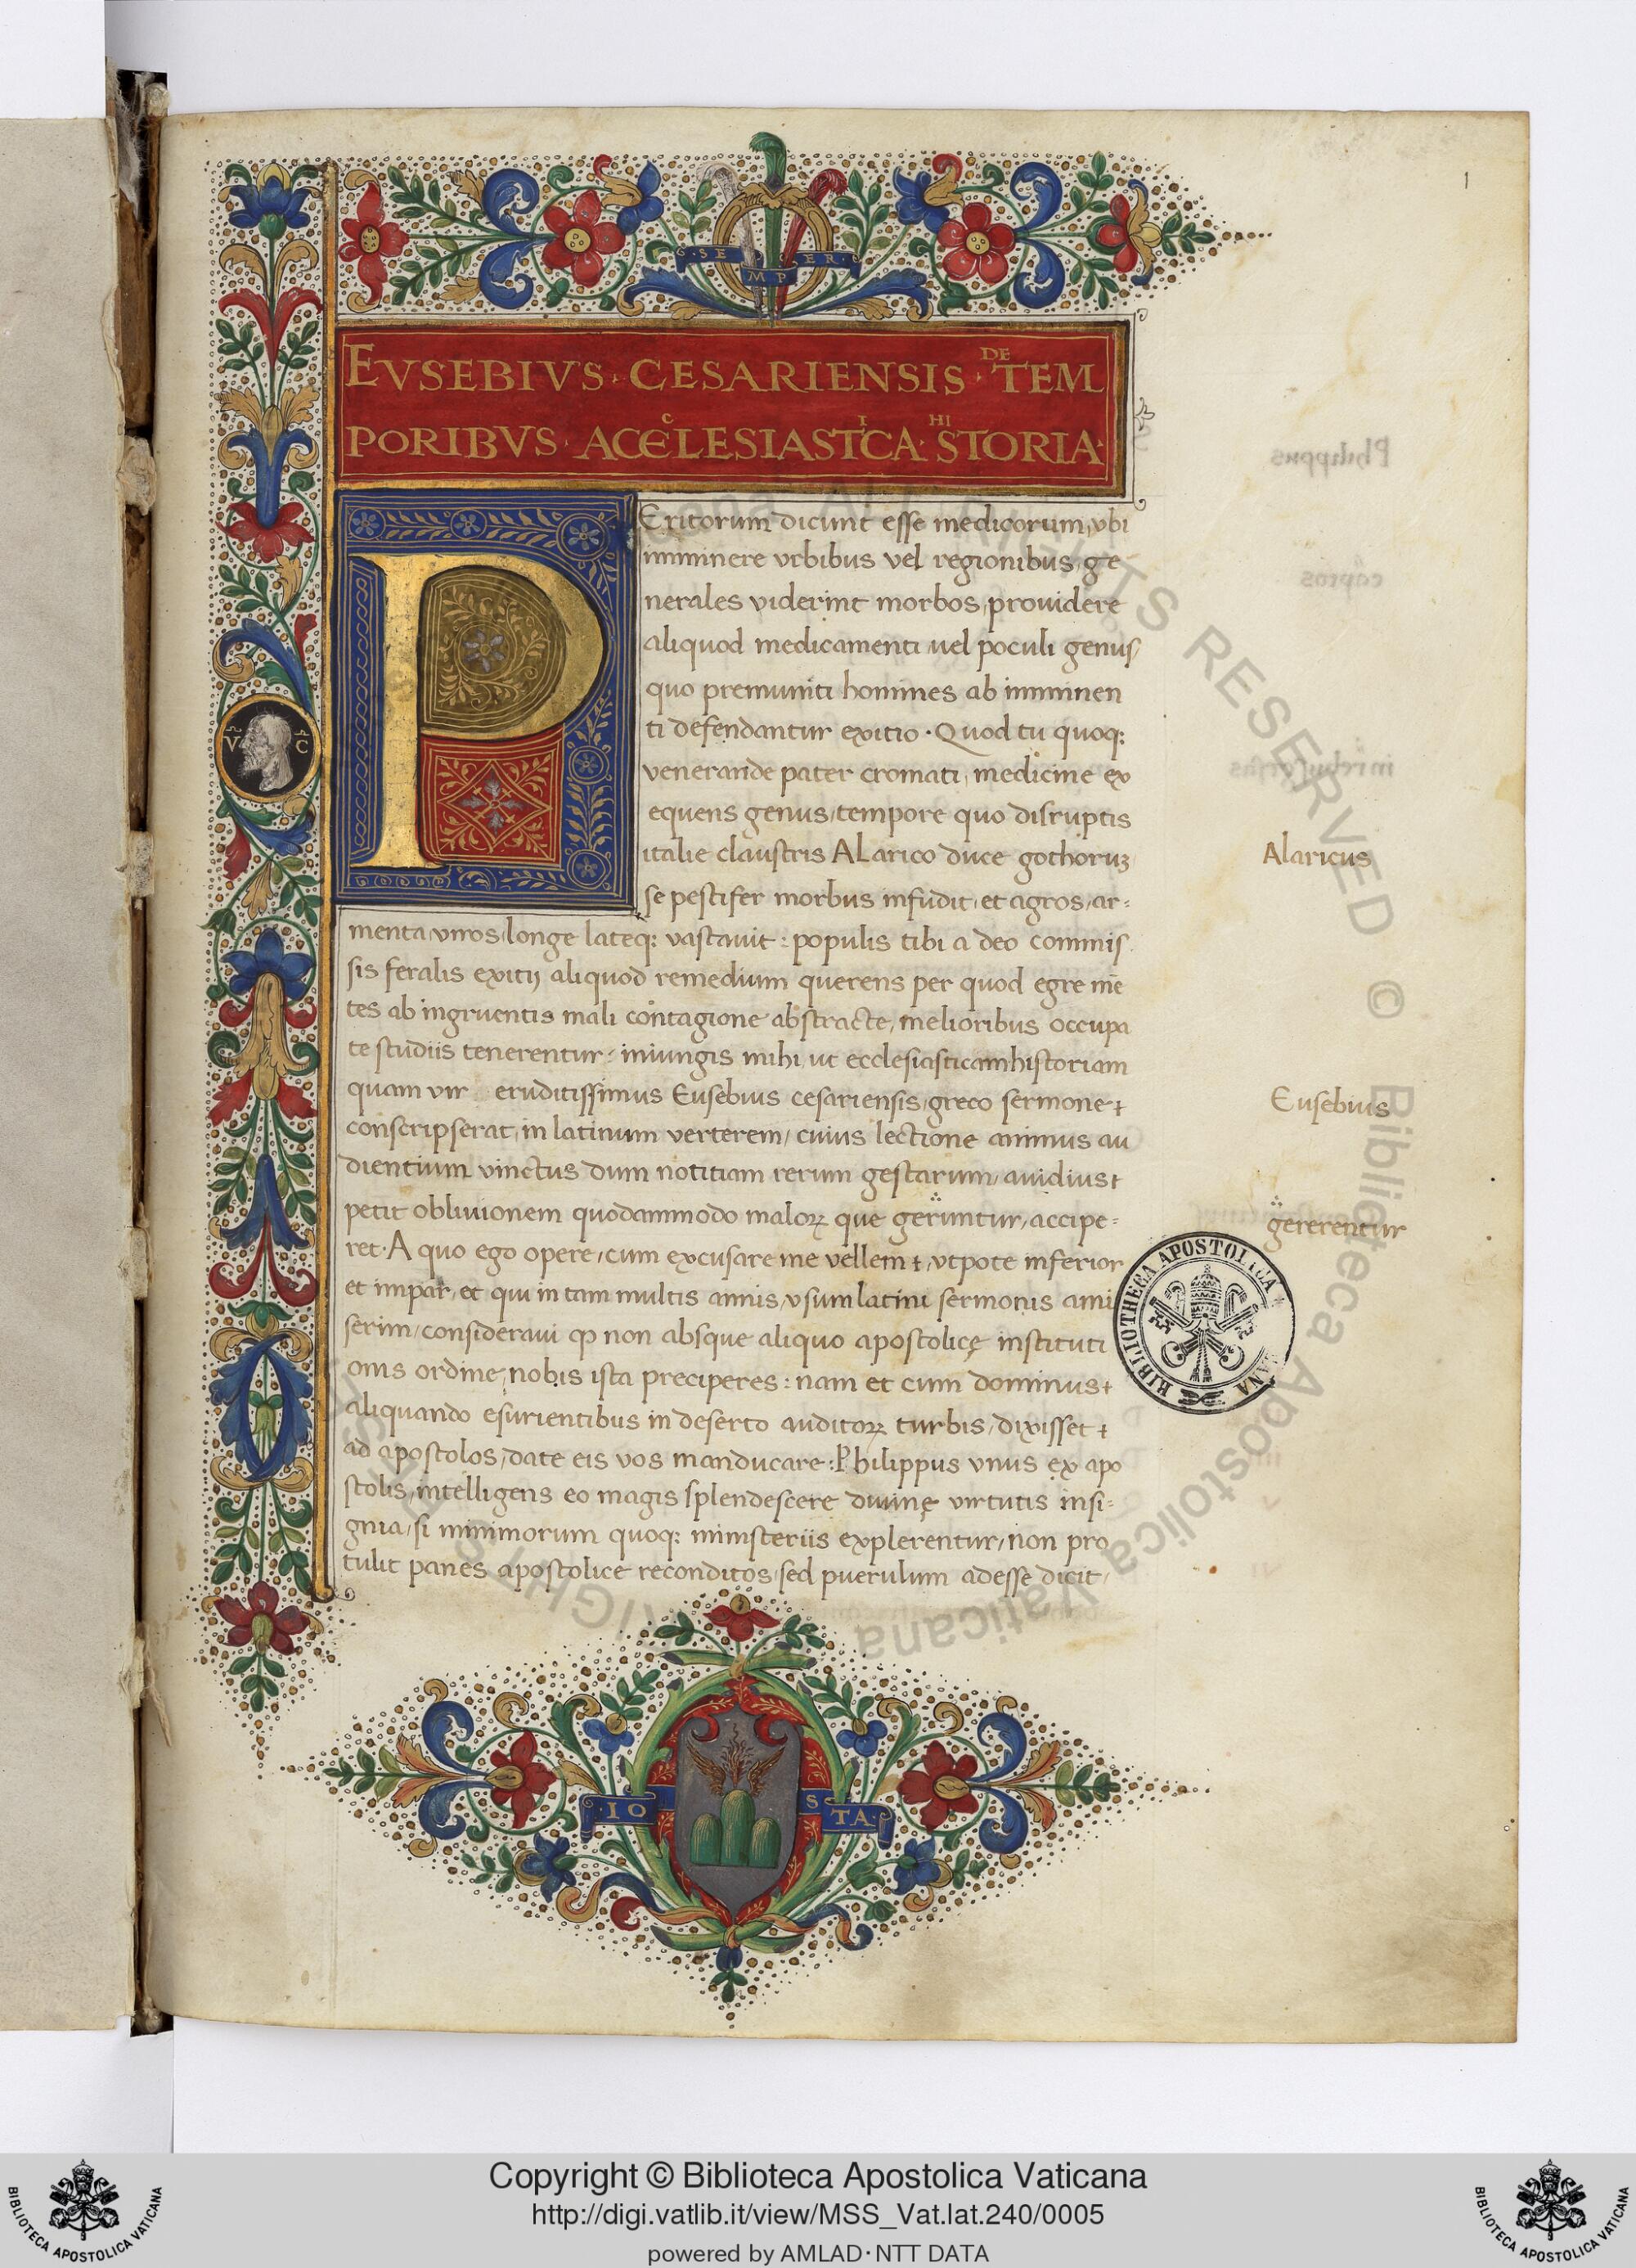 1
·SE MP ER·
EVSEBIVS · CESARIENSIS · DE TEM
PORIBVS · ACCELESIASTICA · HISTORIA·
PEritorum dicunt esse medicorum, vbi
imminere vrbibus vel regionibus, ge
nerales viderint morbos, prouidere
aliquod medicamenti, uel poculi genus
quo premuniti homines ab imminen
ti defendantur exitio · Quod tu quoq:
venerande pater cromati, medicine ex
equens genus, tempore quo disruptis
italie claustris ALarico duce gothoruʒ
se pestifer morbus infudit, et agros, ar=
menta, viros, longe lateq: vastauit : populis tibi a deo commis
sis feralis exitij aliquod remedium querens per quod egre mē
tes ab ingruentis mali contagione abstracte, melioribus occupa
te studiis tenerentur : iniungis mihi, ut ecclesiasticam historiam
quam vir eruditissimus Eusebius cesariensis, greco sermone +
conscripserat, in latinum verterem, cuius lectione animus au
dientium vinctus dum notitiam rerum gestarum, auidius +
petit obliuionem quodammodo maloꝝ que geruntur, accipe=
ret · A quo ego opere, cum excusare me vellem +, vtpote inferior
et impar, et qui in tam multis annis, vsum latini sermonis ami
serim, consideraui ꝙ non absque aliquo apostolicę instituti
onis ordine, nobis ista preciperes : nam et cum dominus +
aliquando esurientibus in deserto auditoꝝ turbis, dixisset +
ad apostolos, date eis vos manducare : Philippus vnus ex apo
stolis, intelligens eo magis splendescere diuinę virtutis insi=
gnia, si minimorum quoq: ministeriis explerentur, non pro
tulit panes apostolice reconditos, sed puerulum adesse dicit,
V C
Alaricus
Eusebius
gererentur
BIBLIOTHECA APOSTOLICA
·IO S TA·
RIGHTS RESERVED © Biblioteca Apostolica Vaticana
Copyright © Biblioteca Apostolica Vaticana
http://digi.vatlib.it/view/MSS_Vat.lat.240/0005
powered by AMLAD·NTT DATA
BIBLIOTECA APOSTOLICA VATICANA
BIBLIOTECA APOSTOLICA VATICANA